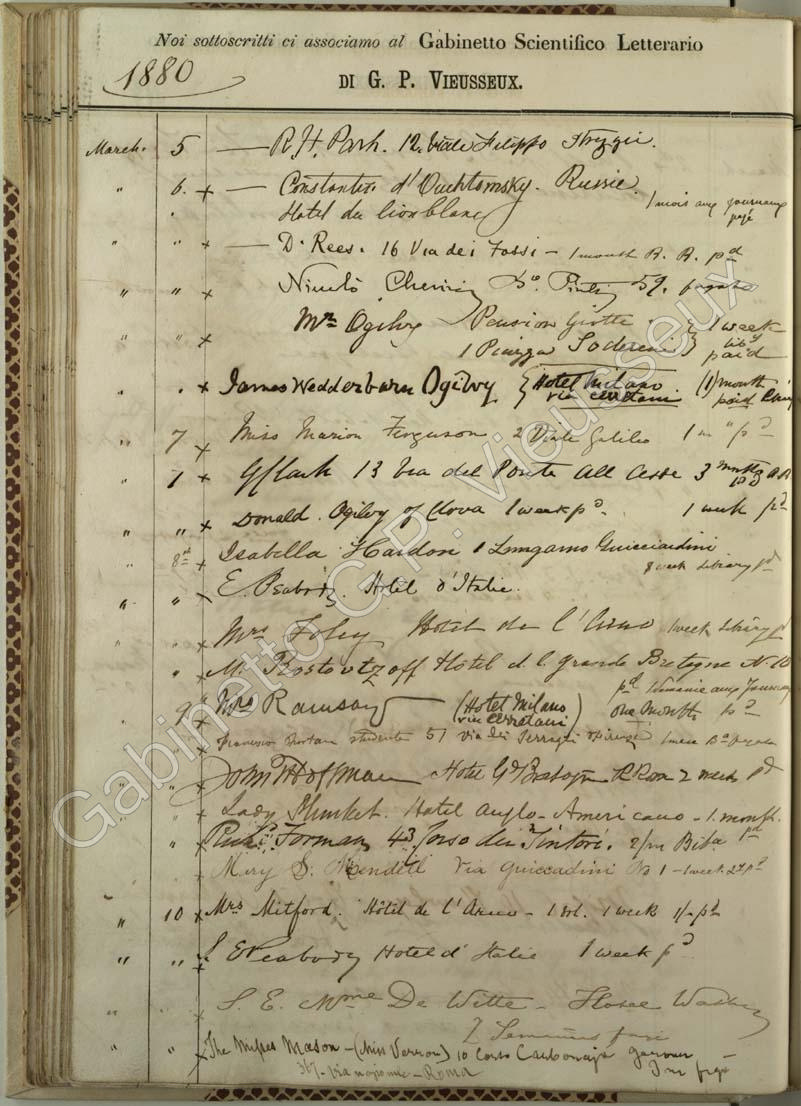 Noi sottoscritti ci associamo al Gabinetto Scientifico Letterario
1880
DI G. P. VIEUSSEUX.
March. 5 — R. H. Park. 12. Viale Filippo Strozzi.
" 6. x — Constantin d'Ouchtomsky. Russie.
Hotel du lion blanc 1 mois aux journaux payé
" " x — D. Rees. 16 Via dei Fossi — 1 month R. R. pd
" " x Cherici Bo. Pinti 59. pagato
" x Mrs Ogilvy Pension Giotti 1 week
1 Piazza Soderini paid
" . x James Wedderburn Ogilvy { Hotel Milano via cerretani (1) month paid
" 7 x Miss Marion Ferguson 2 Viale Galileo 1 m " pd
" 1 x 13 Via del Ponte all 3 months pd
" " x Donald Ogilvy of Clova 1 week pd. 1 week pd
" 8th x Isabella 1 Lungarno Guicciardini
week library pd
" " E. Peabody. Hotel d'Italie.
" x Mrs Foley Hotel de l'Arno 1 week library pd
" M. Rostovtzoff Hôtel d. l. Grande Bretagne N. 10
pd 1 semaine aux Journaux
9 x Mrs Ramsay (Hotel Milano via cerretani) one month pd
" studente 51 Via dei Serragli 1 mese
" John T Hoffman Hotel Gd Bretagne R Room 2 weeks pd
" x Lady Plunket. Hotel Anglo-Americano — 1. month.
" x Forman 43 Corso dei Tintori. pd
Mary S. Via Guicciardini No 1 — 1 week pd
" 10 x Mrs Mitford. Hôtel de l'Arno — 1 vol. 1 week 1/- pd
" " x S E Peabody Hotel d'Italie 1 week pd
S. E. Mme De Witte —
2 Semaines
" " x The Misses Mason — (Miss Vernon) 10 Corso
Roma
Gabinetto G.P. Vieusseux